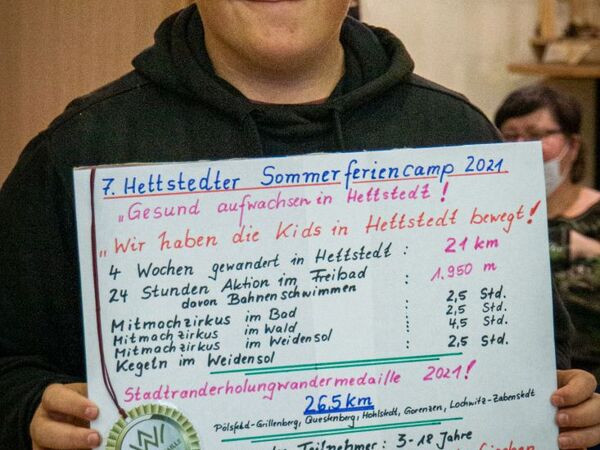 7. Hettstedter Sommerferiencamp 2021
„Gesund aufwachsen in Hettstedt!
„Wir haben die Kids in Hettstedt bewegt!
4 Wochen gewandert in Hettstedt : 21 km
24 Stunden Aktion im Freibad :
davon Bahnenschwimmen 1.950 m
Mitmachzirkus im Bad : 2,5 Std.
Mitmachzirkus im Wald : 2,5 Std.
Mitmachzirkus im Weidensol : 4,5 Std.
Kegeln im Weidensol : 2,5 Std.
Stadtranderholungwandermedaille 2021!
26,5 km
Pölsfeld-Grillenberg, Questenberg, Hohlstedt, Gorenzen, Lochwitz-Zabenstedt
Teilnehmer: 3-18 Jahre